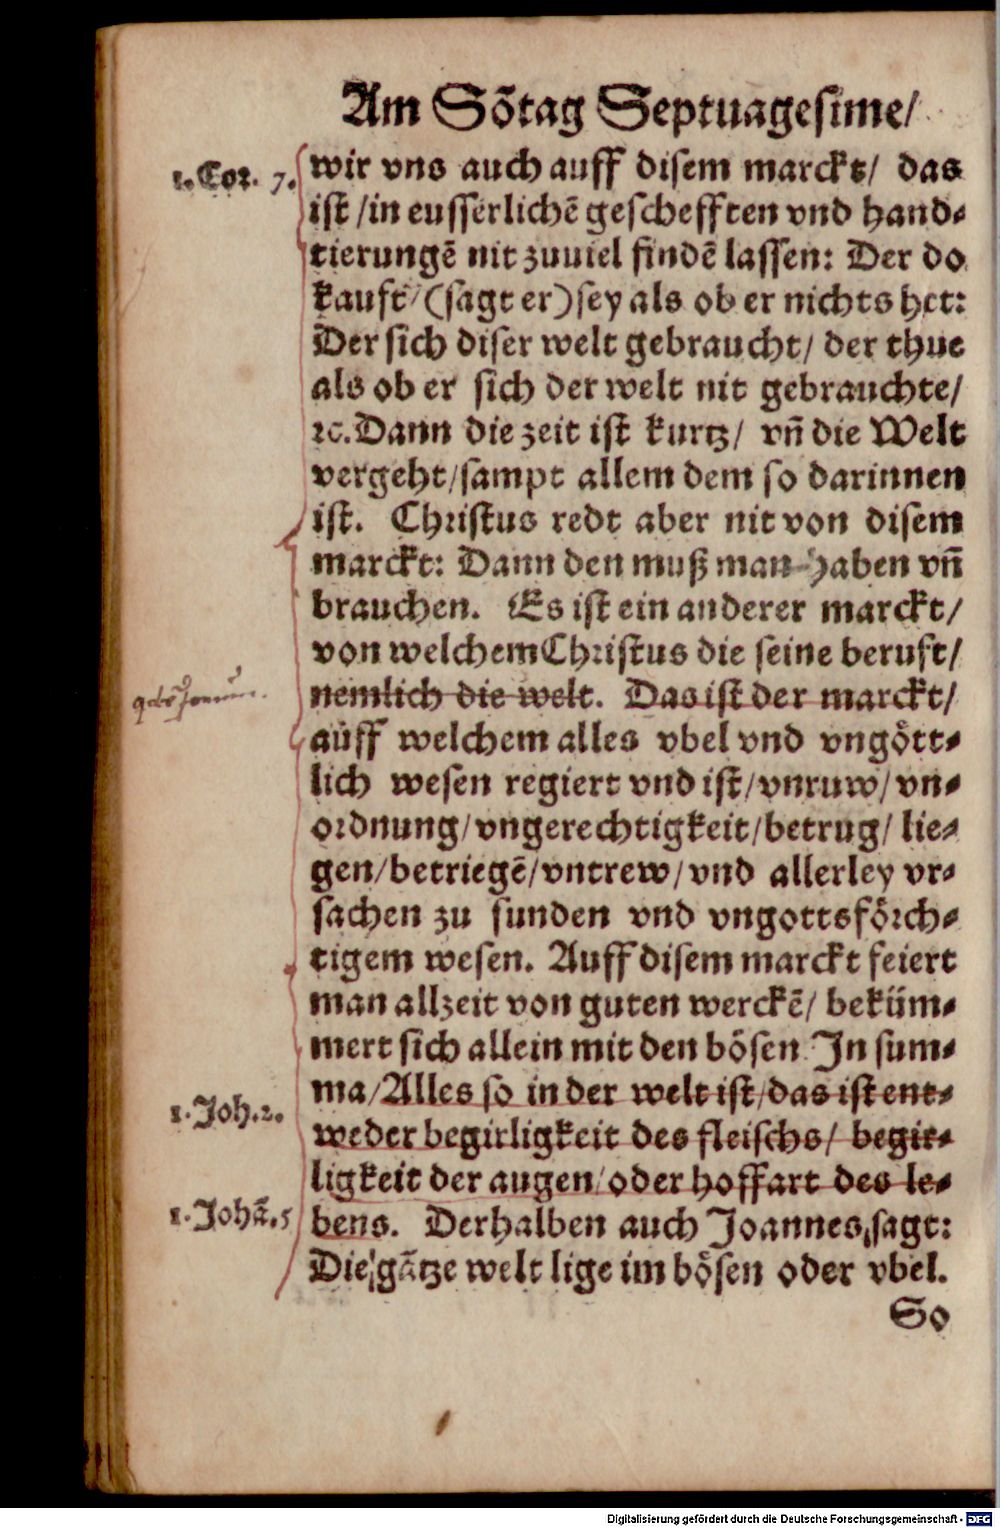 Am Sõtag Septuagesime/
1. Cor. 7.
wir vns auch auff disem marckt/ das
ist /in eusserlichẽ geschefften vnd hand⸗
tierungẽ nit zuuiel findẽ lassen: Der do
kauft/ (sagt er) sey als ob er nichts het:
Der sich diser welt gebraucht/ der thue
als ob er sich der welt nit gebrauchte/
ꝛc. Dann die zeit ist kurtz/ vñ die Welt
vergeht/sampt allem dem so darinnen
ist. Christus redt aber nit von disem
marckt: Dann den muß man haben vñ
brauchen. Es ist ein anderer marckt/
von welchem Christus die seine beruft/
nemlich die welt. Das ist der marckt/
auff welchem alles vbel vnd vngött⸗
lich wesen regiert vnd ist/vnruw/ vn⸗
ordnung/vngerechtigkeit/betrug/ lie⸗
gen/betriegẽ/vntrew/vnd allerley vr⸗
sachen zu sunden vnd vngottsförch⸗
tigem wesen. Auff disem marckt feiert
man allzeit von guten werckẽ/ beküm⸗
mert sich allein mit den bösen In sum⸗
1. Joh. 2.
ma/Alles so in der welt ist/das ist ent⸗
weder begirligkeit des fleischs/ begir⸗
ligkeit der augen/oder hoffart des le⸗
1. Johã. 5
bens. Derhalben auch Joannes sagt:
Die gãtze welt lige im bösen oder vbel.
So
Digitalisierung gefördert durch die Deutsche Forschungsgemeinschaft - DFG